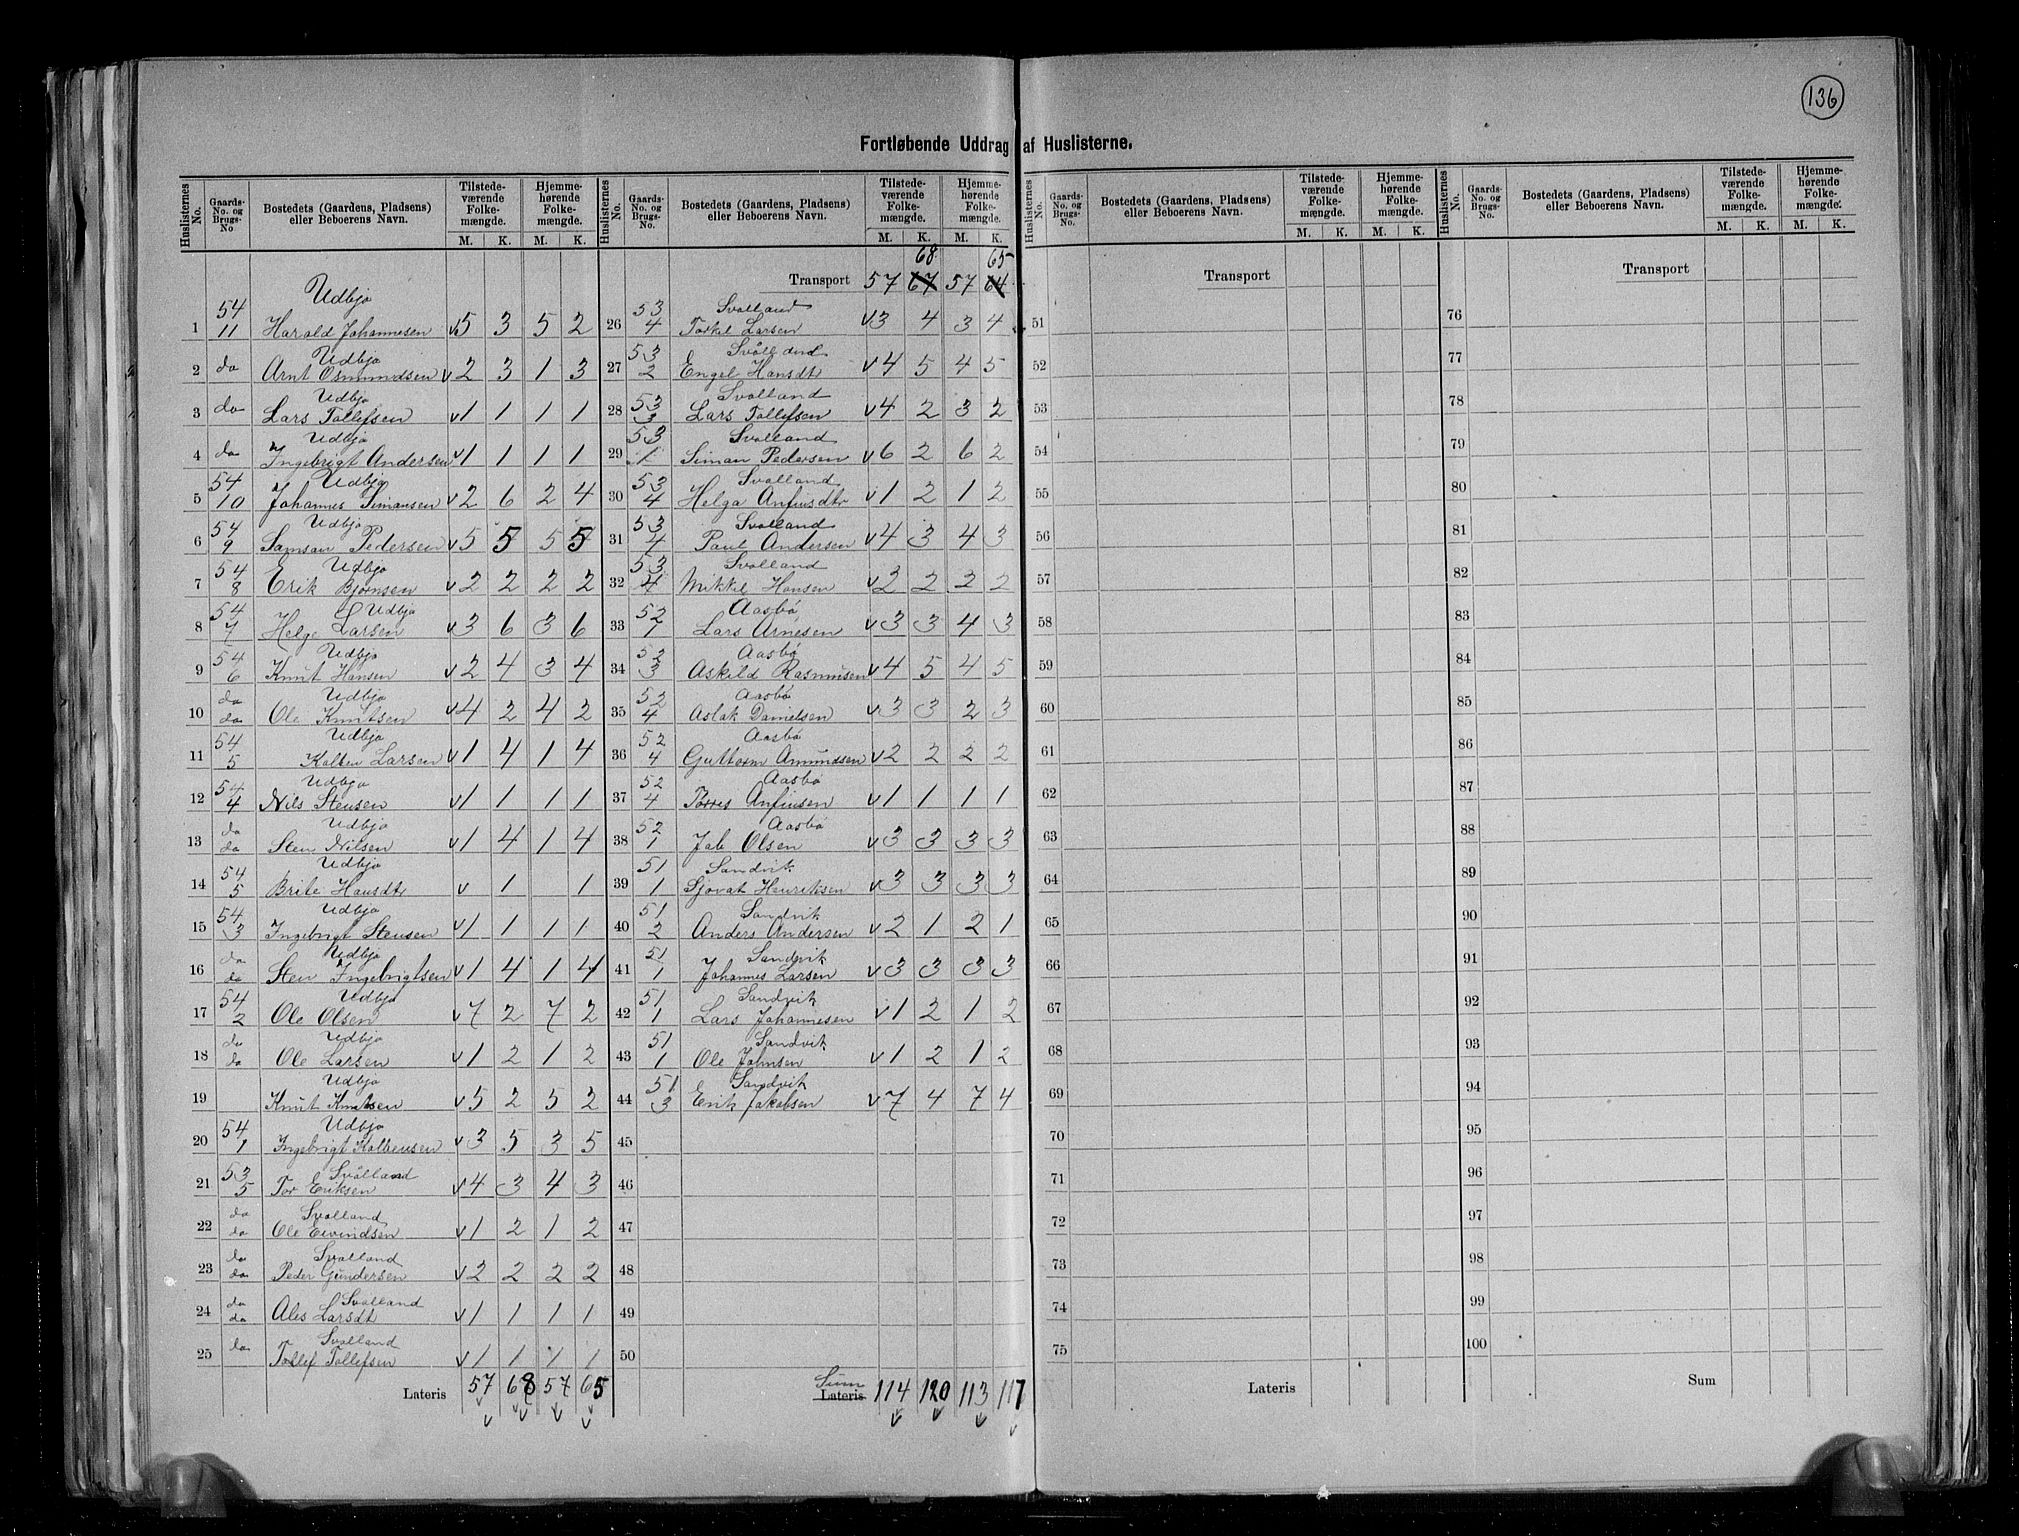 136
Fortløbende Uddrag af Huslisterne.
Huslisternes No. Gaards-No. og Brugs-No. Bostedets (Gaardens, Pladsens) eller Beboerens Navn. Tilstedeværende Folkemængde. M. K. Hjemmehørende Folkemængde. M. K.
Udbjo
1 54 11 Harald Johannesen v 5 3 5 2
Udbjo
2 do Arnt Osmundsen v 2 3 1 3
Udbjo
3 do Lars Tollefsen v 1 1 1 1
Udbjo
4 do Ingebrigt Andersen v 1 1 1 1
Udbjo
5 54 10 Johannes Simonsen v 2 6 2 4
Udbjo
6 54 9 Samson Pedersen v 5 5 5 5
Udbjo
7 54 8 Erik Bjørnsen v 2 2 2 2
Udbjo
8 54 7 Helge Larsen v 3 6 3 6
Udbjo
9 54 6 Knut Hansen v 2 4 3 4
Udbjo
10 do do Ole Knutsen v 4 2 4 2
Udbjo
11 54 5 Kolben Larsen v 1 4 1 4
Udbjo
12 54 4 Nils Stensen v 1 1 1 1
Udbjo
13 do do Sten Nilsen v 1 4 1 4
Udbjo
14 54 5 Brite Hansdtr v 1 1
Udbjo
15 54 3 Ingebrigt Stensen v 1 1 1 1
Udbjo
16 do do Sten Ingebrigtsen v 1 4 1 4
Udbjo
17 54 2 Ole Olsen v 7 2 7 2
Udbjo
18 do do Ole Larsen v 1 2 1 2
Udbjo
19 Knut Knutsen v 5 2 5 2
Udbjo
20 54 1 Ingebrigt Kolbensen v 3 5 3 5
Svolland
21 53 5 Tor Eriksen v 4 3 4 3
Svolland
22 do do Ole Eivindsen v 1 2 1 2
Svolland
23 do do Peder Gundersen v 2 2 2 2
Svolland
24 do do Ales Larsdt v 1 1 1 1
Svolland
25 do Tollef Tollefsen v 1 1 1 1
Lateris 57 68 57 65
Huslisternes No. Gaards-No. og Brugs-No. Bostedets (Gaardens, Pladsens) eller Beboerens Navn. Tilstedeværende Folkemængde. M. K. Hjemmehørende Folkemængde. M. K.
68 65
Transport 57 67 57 64
Svolland
26 53 4 Torkel Larsen v 3 4 3 4
Svolland
27 53 2 Engel Hansdtr v 4 5 4 5
Svolland
28 53 3 Lars Tollefsen v 4 2 3 2
Svolland
29 53 1 Simon Pedersen v 6 2 6 2
Svolland
30 53 4 Helga Anfinsdtr v 1 2 1 2
Svolland
31 53 4 Paul Andersen v 4 3 4 3
Svolland
32 53 4 Mikkel Hansen v 2 2 2 2
Aasbø
33 52 1 Lars Arnesen v 3 3 4 3
Aasbø
34 52 3 Askild Rasmusen v 4 5 4 5
Aasbø
35 52 4 Aslak Danielsen v 3 3 2 3
Aasbø
36 52 4 Guttorm Amundsen v 2 2 2 2
Aasbø
37 52 4 Torres Anfinsen v 1 1 1 1
Aasbø
38 52 1 Jab Olsen v 3 3 3 3
Sandvik
39 51 1 Sjovat Henriksen v 3 3 3 3
Sandvik
40 51 2 Anders Andersen v 2 1 2 1
Sandvik
41 51 1 Johannes Larsen v 3 3 3 3
Sandvik
42 51 1 Lars Johannesen v 1 2 1 2
Sandvik
43 51 1 Ole Johnsen v 1 2 1 2
Sandvik
44 51 3 Erik Jakobsen v 7 4 7 4
45
46
47
48
49
50
Sum
Lateris 114 120 113 117
Huslisternes No. Gaards-No. og Brugs-No. Bostedets (Gaardens, Pladsens) eller Beboerens Navn. Tilstedeværende Folkemængde. M. K. Hjemmehørende Folkemængde. M. K.
Transport
51
52
53
54
55
56
57
58
59
60
61
62
63
64
65
66
67
68
69
70
71
72
73
74
75
Lateris
Huslisternes No. Gaards-No. og Brugs-No. Bostedets (Gaardens, Pladsens) eller Beboerens Navn. Tilstedeværende Folkemængde. M. K. Hjemmehørende Folkemængde. M. K.
Transport
76
77
78
79
80
81
82
83
84
85
86
87
88
89
90
91
92
93
94
95
96
97
98
99
100
Sum